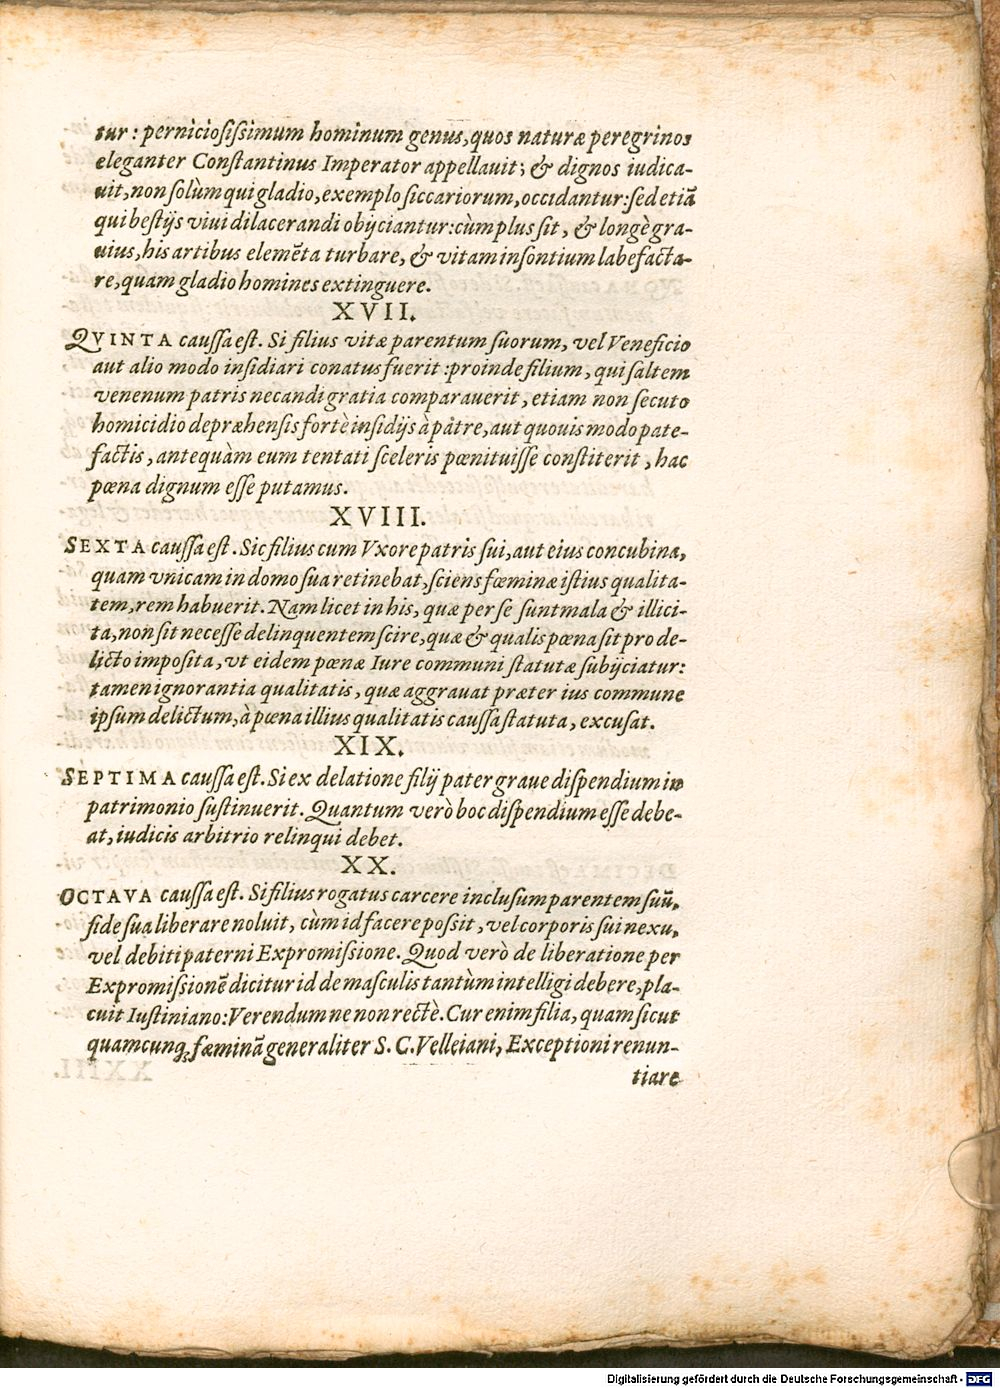 tur: perniciosissimum hominum genus, quos naturæ peregrinos
eleganter Constantinus Imperator appellauit; & dignos iudica-
uit, non solùm qui gladio, exemplo siccariorum, occidantur: sed etiã
qui bestijs viui dilacerandi obijciantur: cùm plus sit, & longè gra-
uius, his artibus elemẽta turbare, & vitam insontium labefacta-
re, quam gladio homines extinguere.
XVII.
QVINTA caussa est. Si filius vitæ parentum suorum, vel Veneficio
aut alio modo insidiari conatus fuerit: proinde filium, qui saltem
venenum patris necandi gratia comparauerit, etiam non secuto
homicidio depræhensis fortè insidijs à pátre, aut quouis modo pate-
factis, antequàm eum tentati sceleris pœnituisse constiterit, hac
pœna dignum esse putamus.
XVIII.
SEXTA caussa est. Sic filius cum Vxore patris sui, aut eius concubina,
quam vnicam in domo sua retinebat, sciens fœminæ istius qualita-
tem, rem habuerit. Nam licet in his, quæ per se sunt mala & illici-
ta, non sit necesse delinquentem scire, quæ & qualis pœna sit pro de-
licto imposita, vt eidem pœnæ Iure communi statutæ subijciatur:
tamen ignorantia qualitatis, quæ aggrauat præter ius commune
ipsum delictum, à pœna illius qualitatis caussa statuta, excusat.
XIX.
SEPTIMA caussa est. Si ex delatione filij pater graue dispendium in
patrimonio sustinuerit. Quantum verò hoc dispendium esse debe-
at, iudicis arbitrio relinqui debet.
XX.
OCTAVA caussa est. Si filius rogatus carcere inclusum parentem suũ,
fide sua liberare noluit, cùm id facere possit, vel corporis sui nexu,
vel debiti paterni Expromissione. Quod verò de liberatione per
Expromissionẽ dicitur id de masculis tantùm intelligi debere, pla-
cuit Iustiniano: Verendum ne non rectè. Cur enim filia, quam sicut
quamcunq; fœminã generaliter S. C. Velleiani, Exceptioni renun-
tiare
Digitalisierung gefördert durch die Deutsche Forschungsgemeinschaft - DFG